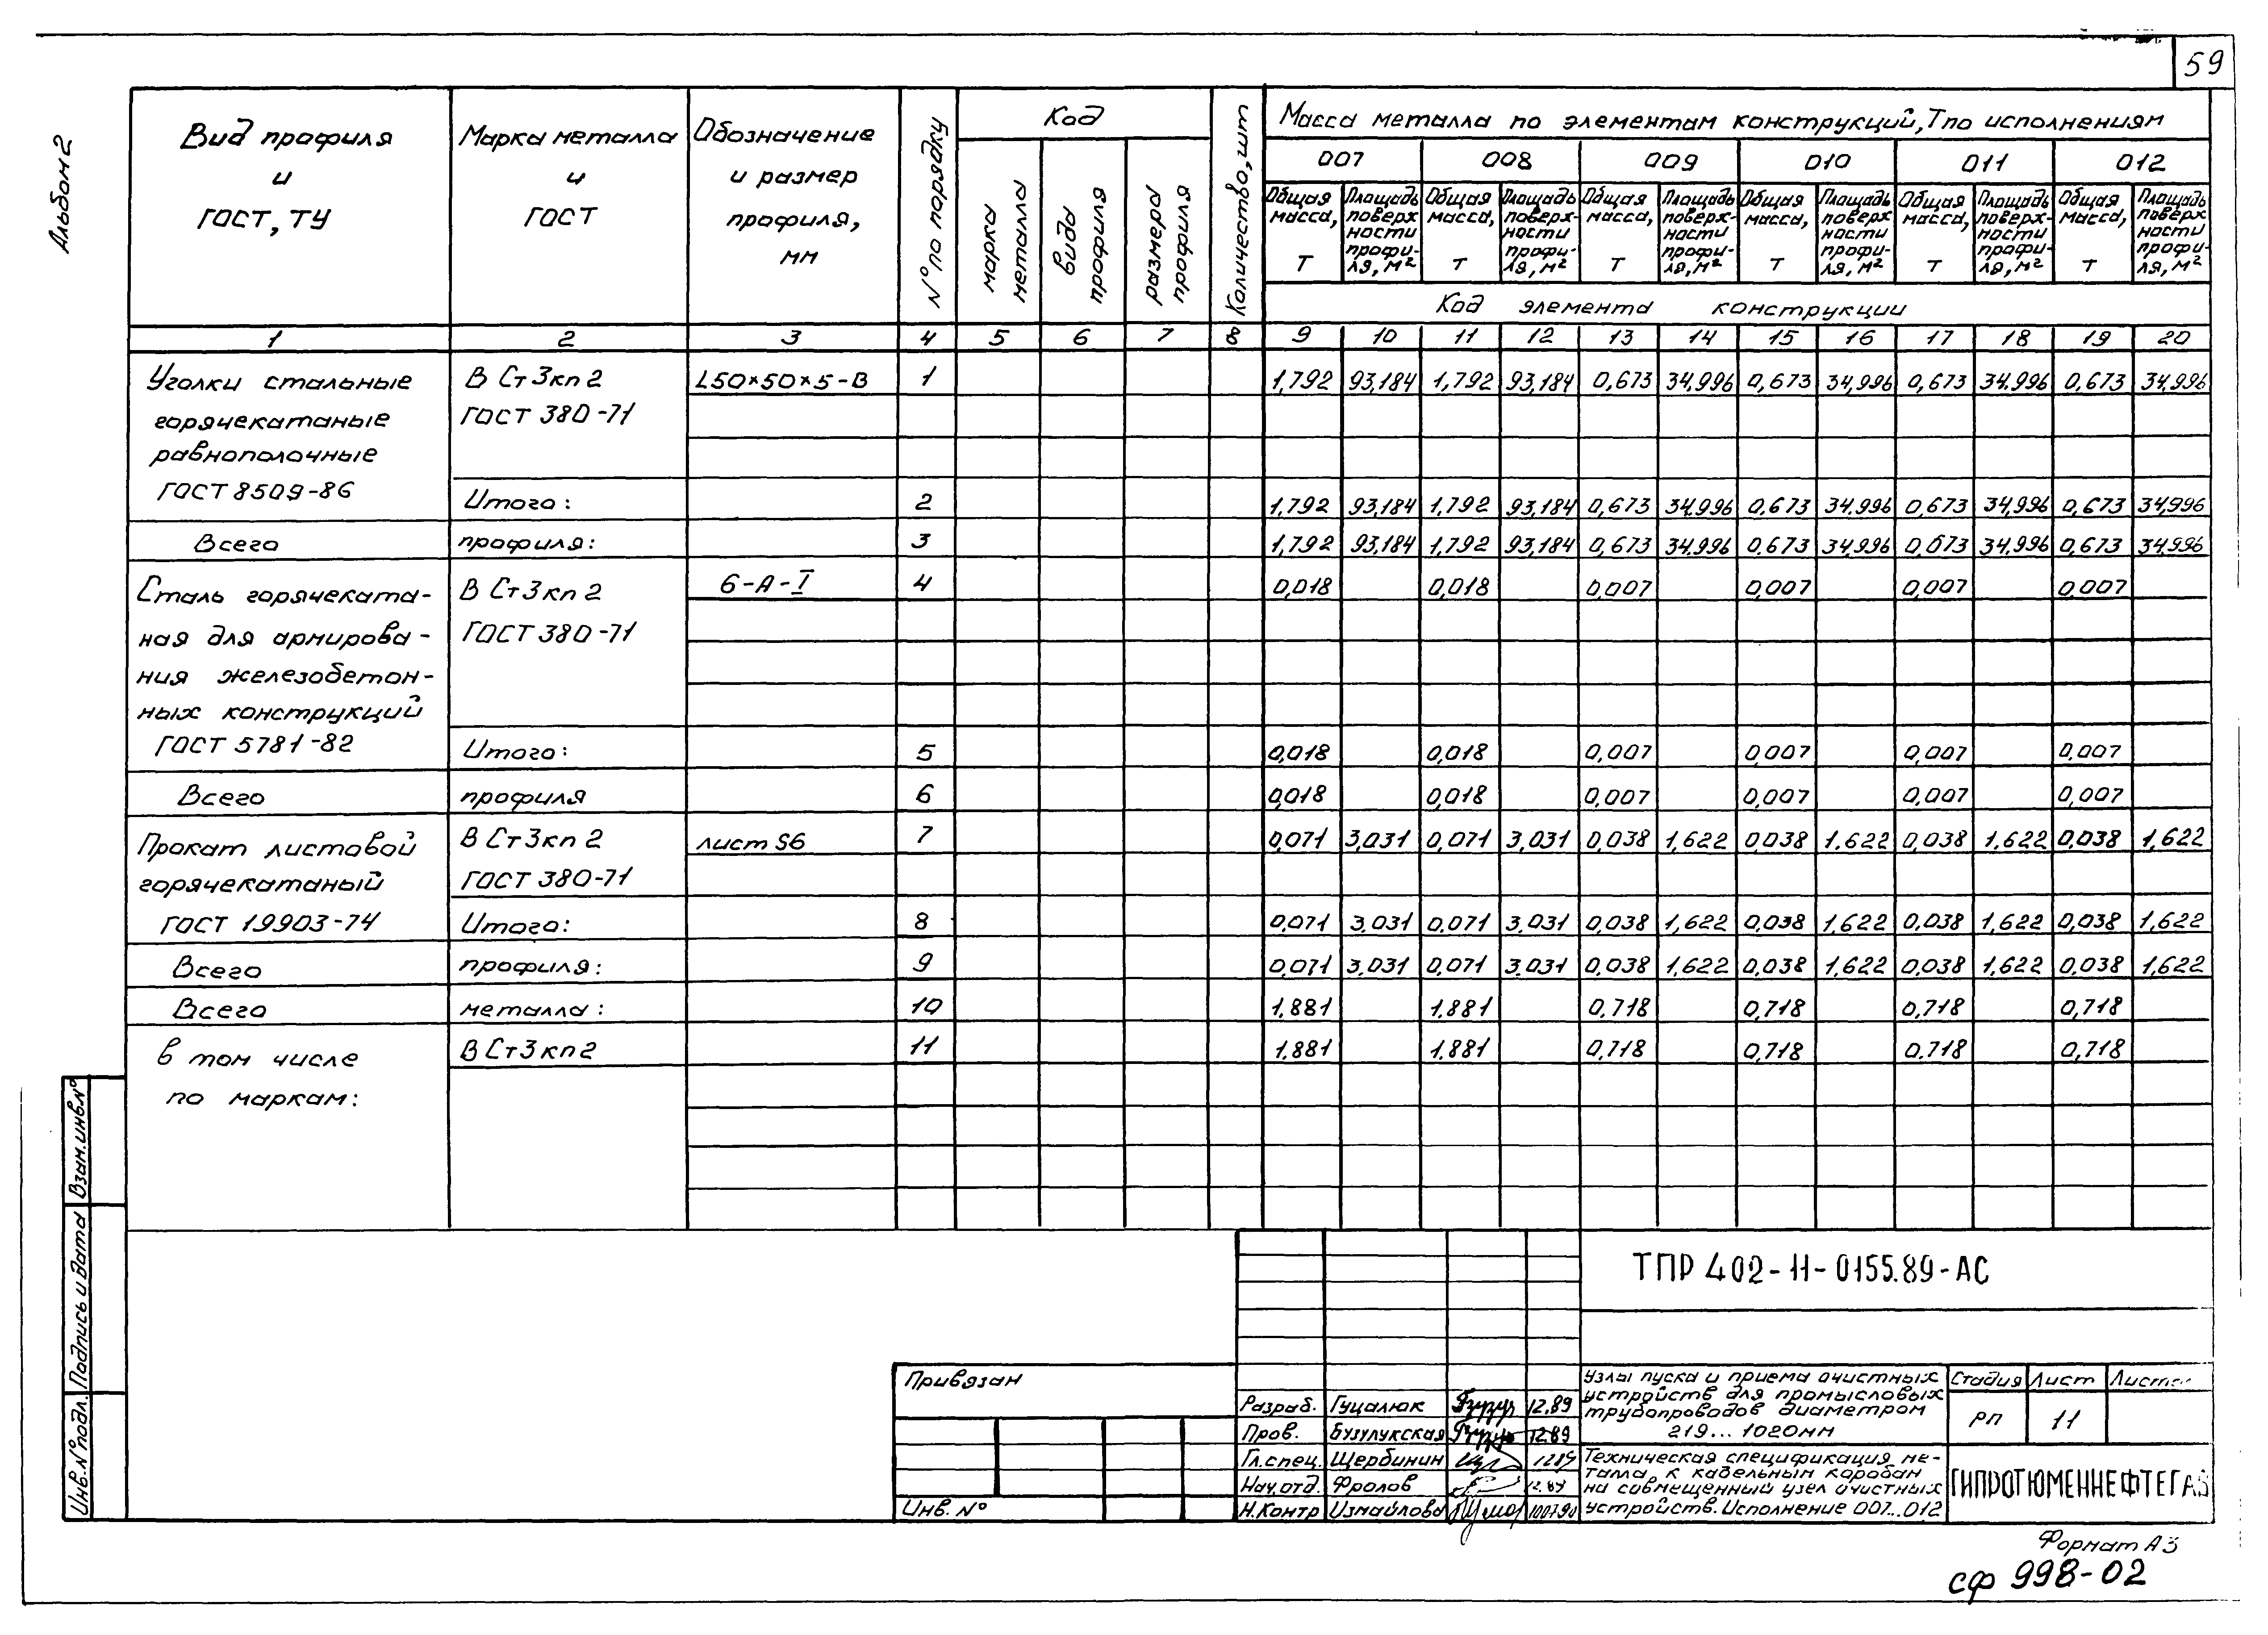 59
Альбом 2
Вид профиля и ГОСТ, ТУ
Марка металла и ГОСТ
Обозначение и размер профиля, мм
N° по порядку
Код
марка металла
вида профиля
размера профиля
Количество, шт
Масса металла по элементам конструкций, Т по исполнениям
007 008 009 010 011 012
Общая масса, Т Площадь поверхности профиля, м² Общая масса, Т Площадь поверхности профиля, м² Общая масса, Т Площадь поверхности профиля, м² Общая масса, Т Площадь поверхности профиля, м² Общая масса, Т Площадь поверхности профиля, м² Общая масса, Т Площадь поверхности профиля, м²
Код элемента конструкции
1 2 3 4 5 6 7 8 9 10 11 12 13 14 15 16 17 18 19 20
Уголки стальные В Ст3кп2 L50×50×5-В 1 1,792 93,184 1,792 93,184 0,673 34,996 0,673 34,996 0,673 34,996 0,673 34,996
горячекатаные ГОСТ 380-71
равнополочные
ГОСТ 8509-86 Итого: 2 1,792 93,184 1,792 93,184 0,673 34,996 0,673 34,996 0,673 34,996 0,673 34,996
Всего профиля: 3 1,792 93,184 1,792 93,184 0,673 34,996 0,673 34,996 0,673 34,996 0,673 34,996
Сталь горячеката- В Ст3кп2 6-А-I 4 0,018 0,018 0,007 0,007 0,007 0,007
ная для армирова- ГОСТ 380-71
ния железобетон-
ных конструкций
ГОСТ 5781-82 Итого: 5 0,018 0,018 0,007 0,007 0,007 0,007
Всего профиля 6 0,018 0,018 0,007 0,007 0,007 0,007
Прокат листовой В Ст3кп2 лист S6 7 0,071 3,031 0,071 3,031 0,038 1,622 0,038 1.622 0,038 1,622 0,038 1,622
горячекатаный ГОСТ 380-71
ГОСТ 19903-74 Итого: 8 0,071 3,031 0,071 3,031 0,038 1,622 0,038 1,622 0,038 1,622 0,038 1,622
Всего профиля: 9 0,071 3,031 0,071 3,031 0,038 1,622 0,038 1,622 0,038 1,622 0,038 1,622
Всего металла: 10 1.881 1.881 0,718 0,718 0,718 0,718
в том числе В Ст3кп2 11 1.881 1.881 0,718 0,718 0.718 0,718
по маркам:
Взам.инв.N°
Подпись и дата
Инв.N°подл.
ТПР 402-11-0155.89-АС
Привязан
Инв. N°
Разраб. Гуцалюк 12.89
Пров. Бузулукская 12.89
Гл.спец. Щербинин 12.89
Нач.отд. Фролов 12.89
Н.Контр Измайлова 10.07.90
Узлы пуска и приема очистных
устройств для промысловых
трубопроводов диаметром
219...1020мм
Стадия Лист
РП 11
Техническая спецификация ме-
талла к кабельным коробам
на совмещенный узел очистных
устройств. Исполнение 007...012
ГИПРОТЮМЕННЕФТЕГАЗ
Формат А3
сф 998-02